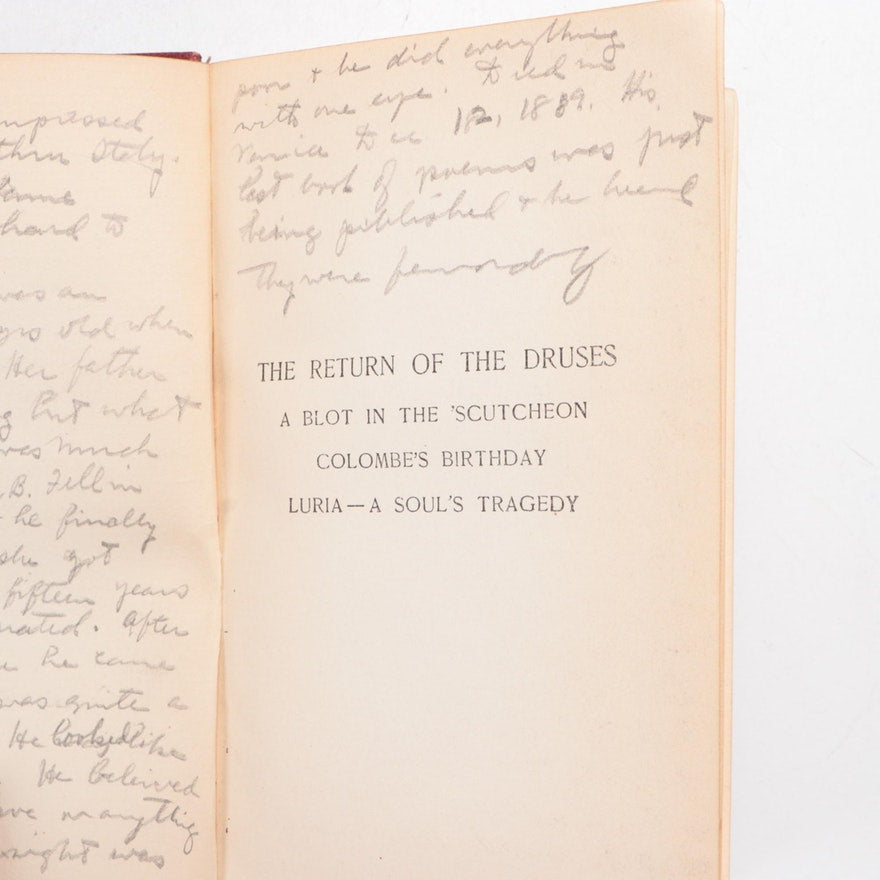 mpressed
thru Italy.
hard to
was an
yrs old when
Her father
g but what
was much
B. Fell in
he finally
she got
fifteen years
After
he came
was quite a
He looked like
He believed
anything
night was
poor & he did everything
with one eye. Died in
Venice Dec 12, 1889. His
last book of poems was just
being published & he heard
They were
THE RETURN OF THE DRUSES
A BLOT IN THE 'SCUTCHEON
COLOMBE'S BIRTHDAY
LURIA—A SOUL'S TRAGEDY